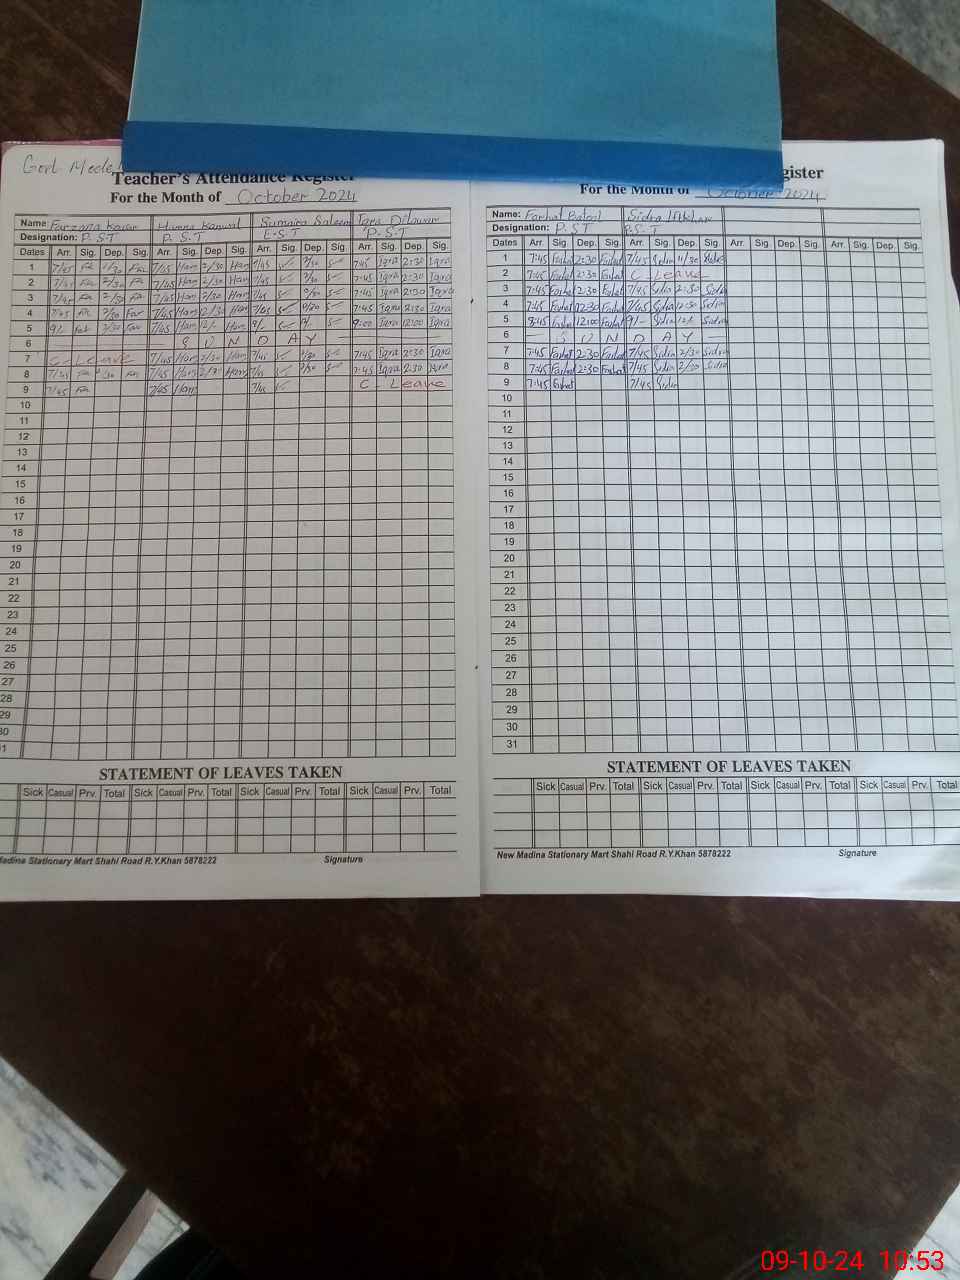 Govt. Mode
Teacher's Attendance Register
For the Month of October 2024
Name: Farzana Kausar Humna Kanwal Sumaira Saleem Iqra Dilawar
Designation: P.S.T P.S.T E.S.T P.S.T
Dates Arr. Sig. Dep. Sig. Arr. Sig. Dep. Sig. Arr. Sig. Dep. Sig. Arr. Sig. Dep. Sig.
1 7/45 7/45 Ham 2/30 Ham 7/45 7:45 Iqra 2:30 Iqra
2 7/45 2/30 7/45 Ham 2/30 Ham 7/45 2/30 7:45 Iqra 2:30 Iqra
3 7/45 2/30 7/45 Ham 2/30 Ham 7/45 2/30 7:45 Iqra 2:30 Iqra
4 7/45 2/30 Far 7/45 Ham 2/30 Ham 7/45 2/30 7:45 Iqra 2:30 Iqra
5 9/- Far Far 7/45 Ham 12/- Ham 9/- 9:00 Iqra 12:00 Iqra
6 SUNDAY
7 C-Leave 7/45 Ham 2/30 Ham 7/45 2/30 7:45 Iqra 2:30 Iqra
8 7/45 Fa 7/45 Ham 2/30 Ham 7/45 2/30 7:45 Iqra 2:30 Iqra
9 7/45 Fa 7/45 Ham 7/45 C-Leave
10
11
12
13
14
15
16
17
18
19
20
21
22
23
24
25
26
27
28
29
30
31
STATEMENT OF LEAVES TAKEN
Sick Casual Prv. Total Sick Casual Prv. Total Sick Casual Prv. Total Sick Casual Prv. Total
Madina Stationary Mart Shahi Road R.Y.Khan 5878222 Signature
gister
For the Month of October 2024
Name: Farhat Batool Sidra
Designation: P.S.T P.S.T
Dates Arr. Sig. Dep. Sig. Arr. Sig. Dep. Sig. Arr. Sig. Dep. Sig. Arr. Sig. Dep. Sig.
1 7:45 Farhat 2:30 Farhat 7/45 Sidra 11/30
2 7:45 Farhat 2:30 Farhat C-Leave
3 7:45 Farhat 2:30 Farhat 7/45 Sidra 2:30 Sidra
4 7:45 Farhat 12:30 Farhat 7/45 Sidra 12:30 Sidra
5 8:45 Farhat 12:00 Farhat 9/- Sidra 12/- Sidra
6 SUNDAY
7 7:45 Farhat 2:30 Farhat 7/45 Sidra 2/30 Sidra
8 7:45 Farhat 2:30 Farhat 7/45 Sidra 2/30 Sidra
9 7:45 Farhat 7/45 Sidra
10
11
12
13
14
15
16
17
18
19
20
21
22
23
24
25
26
27
28
29
30
31
STATEMENT OF LEAVES TAKEN
Sick Casual Prv. Total Sick Casual Prv. Total Sick Casual Prv. Total Sick Casual Prv. Total
New Madina Stationary Mart Shahi Road R.Y.Khan 5878222 Signature
09-10-24 10:53